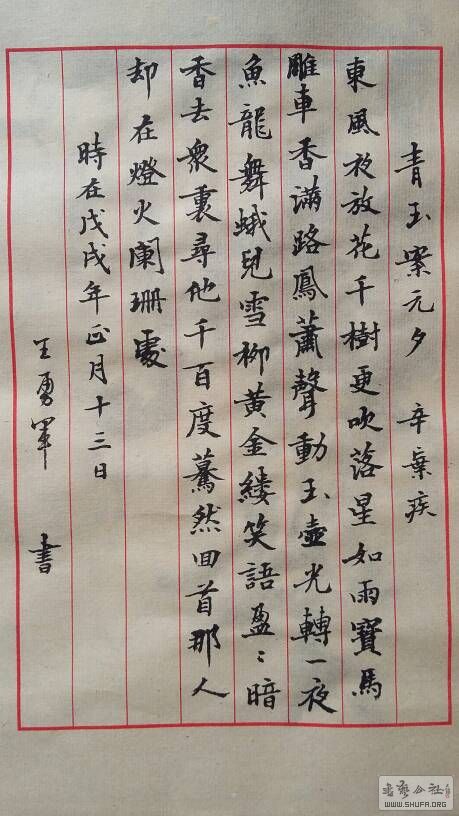 青玉案元夕 辛棄疾
東風夜放花千樹更吹落星如雨寶馬
雕車香滿路鳳蕭聲動玉壺光轉一夜
魚龍舞蛾兒雪柳黃金縷笑語盈〻暗
香去衆裏尋他千百度驀然回首那人
却在燈火闌珊處
時在戊戌年正月十三日
王勇軍 書
書藝公社
WWW.SHUFA.ORG